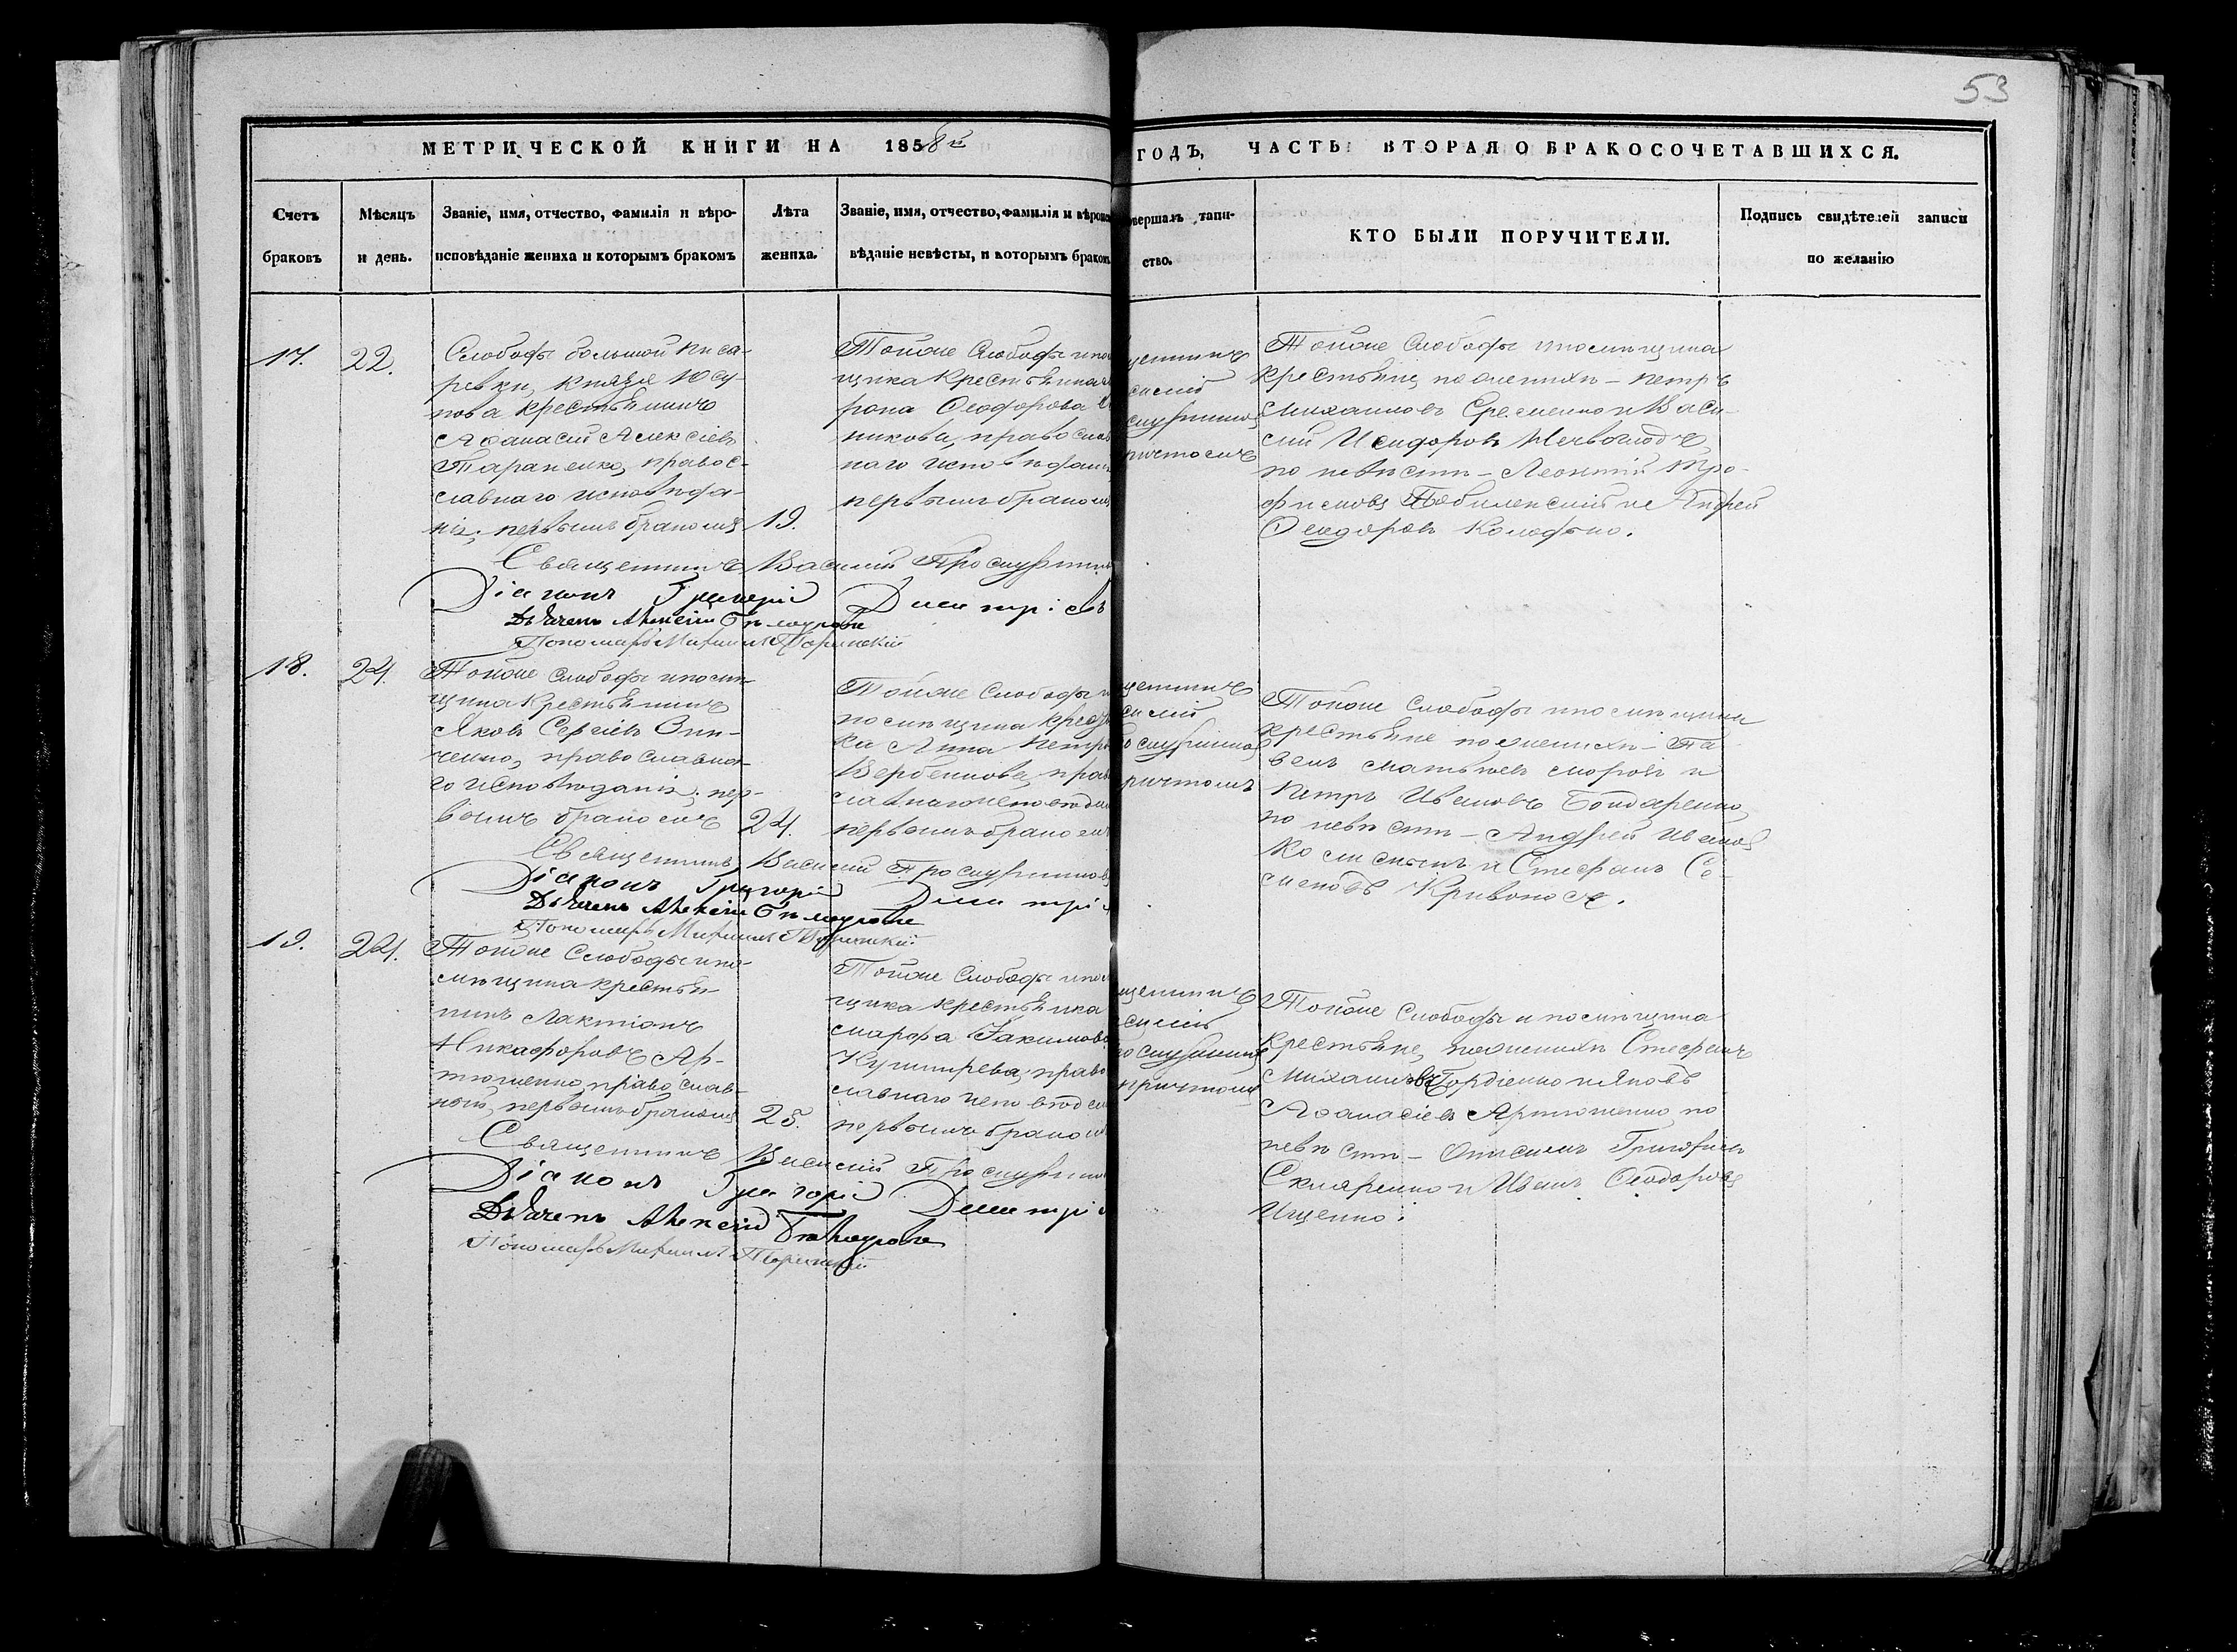 53
МЕТРИЧЕСКОЙ КНИГИ НА 1858й
ГОДЪ, ЧАСТЬ ВТОРАЯ О БРАКОСОЧЕТАВШИХСЯ.
Счетъ браковъ
Мѣсяцъ и день.
Званіе, имя, отчество, фамилія и вѣро-
исповѣданіе жениха и которымъ бракомъ
Лѣта жениха.
Званіе, имя, отчество, фамилія и вѣроис
вѣданіе невѣсты, и которымъ бракомъ
овершалъ таин-
ство.
КТО БЫЛИ ПОРУЧИТЕЛИ.
Подпись свидѣтелей записи
по желанію
17.
22.
Слободы большой Писа-
ревки, Князя Юсу-
пова крестьянинъ
Аѳанасій Алексѣевъ
Тараненко, правос-
славнаго исповѣда-
нія, первымъ бракомъ
19.
Тойже Слободы
щика крестьянка
Ѳеодорова
никова, православ
наго исповѣдан
первымъ бракомъ
щенникъ
силій
скурнинъ
ричтомъ
Тойже Слободы помѣщика
крестьяне, по женихѣ - Петръ
Михаиловъ Еременко и Васи-
лій Исидоровъ
по невѣстѣ - Леонтій Тро-
фимовъ и Андрей
Ѳеодоровъ
Священникъ Василій
Діаконъ Григорій Димитріевъ
Дьячекъ Алексій
Пономарь Михаилъ
18.
24.
Тойже Слободы помѣ-
щика крестьянинъ
Яковъ Сергѣевъ Зин-
ченко, православна-
го исповѣданія, пер-
вымъ бракомъ
24.
Тойже Слободы
помѣщика крест
ка Анна Петро
Вербенкова, прав
славнаго исповѣдан
первымъ бракомъ
щенникъ
силій
ричтомъ
Тойже Слободы помѣщика
крестьяне по женихѣ - Па-
велъ Матвѣевъ Моровъ и
Петръ Ивановъ Бондаренко,
по невѣстѣ - Андрей Ивановъ
и Стефанъ Се-
меновъ Кривонос
Священникъ Василій
Діаконъ Григорій Димитрі
Дьячекъ Алексій
Пономарь Михаилъ
19.
24.
Тойже Слободы по-
мѣщика крестья-
нинъ Лактіонъ
Никафоровъ Ар-
тюшенко, православ-
ный, первымъ бракомъ
25.
Тойже Слободы
щика крестьянка
Марфа Іакимова
Кушнирева, право
славнаго исповѣдан
первымъ бракомъ
щенникъ
силій
причтомъ
Тойже Слободы помѣщика
крестьяне, по женихѣ Стефанъ
Михаиловъ Гордіенко и Яковъ
Аѳанасіевъ Артюшенко по
невѣстѣ - Онисимъ Григорьевъ
Скляренко и Иванъ Ѳеодоровъ
Ищенко.
Священникъ Василій
Діаконъ Григорій Димитрі
Дьячекъ Алексій
Пономарь Михаилъ